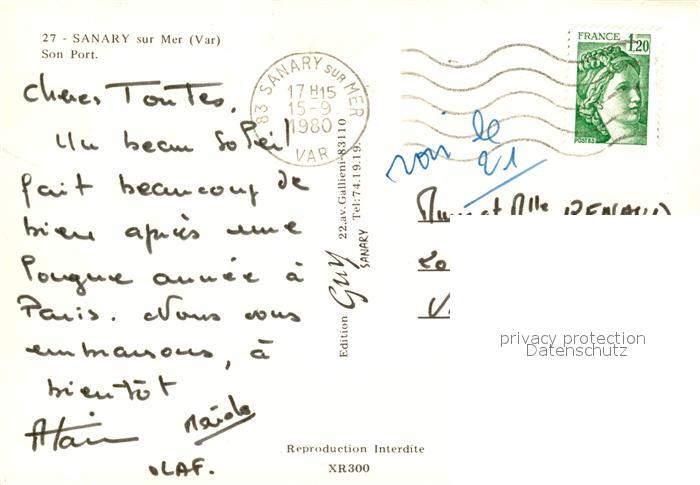 27 - SANARY sur Mer (Var)
Son Port.
Cheres Toutes,
Un beau Soleil
fait beaucoup de
bien après une
longue année à
Paris. Nous vous
embrassons, à
bientôt
Alain
OLAF.
83 SANARY SUR MER
17 H 15
15-9
1980
VAR
Edition Guy 22,av.Gallieni-83110
SANARY Tel:74.19.19.
FRANCE 1,20
POSTES
voir le
21
Mme et Mlle RENAUD
20
V
privacy protection
Datenschutz
Reproduction Interdite
XR300